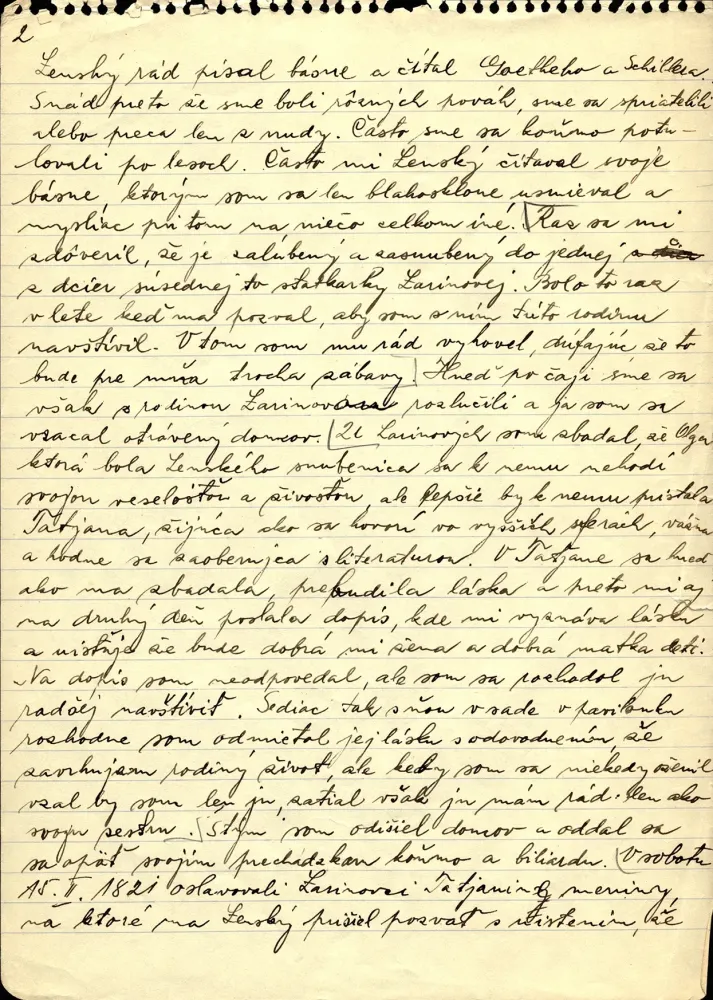 2
Lenský rád písal básne a čítal Goetheho a Schillera.
Snáď preto že sme boli rôznych pováh, sme sa spriatelili
alebo preca len z nudy. Často sme sa koňmo potu-
lovali po lesoch. Často mi Lenský čítaval svoje
básne, ktorým som sa len blahosklone usmieval a
mysliac pri tom na niečo celkom iné. Raz sa mi
zdôveril, že je zalúbený a zasnubený do jednej
z dcier súsednej to statkarky Larinovej. Bolo to raz
v lete keď ma pozval, aby som s ním túto rodinu
navštívil. V tom som mu rád vyhovel, dúfajúc že to
bude pre mňa trocha zábavy. Hneď po čaji sme sa
však s rodinou Larinovou rozlučili a ja som sa
vracal otrávený domov. U Larinových som zbadal, že Olga
ktorá bola Lenského snubenica sa k nemu nehodí
svojou veselosťou a živosťou, ale lepšie by k nemu pristala
Tatjana, žijúca ako sa hovorí vo vyšších sferách, vážna
a hodne sa zaoberujca s literaturou. V Tatjane sa hneď
ako ma zbadala, prebudila láska a preto mi aj
na druhý deň poslala dopis, kde mi vyznáva lásku
a uisťuje že bude dobrá mi žena a dobrá matka deti.
Na dopis som neodpovedal, ale som sa rozhodol ju
radšej navštíviť. Sediac tak s ňou v sade v parilonku
rozhodne som odmietol jej lásku s odovodnením, že
zavrhujem rodiný život, ale keby som sa niekedy oženil
vzal by som len ju, zatial však ju mám rád len ako
svoju sestru. S tým som odišiel domov a oddal sa
sa opäť svojím prechádzkam koňmo a biliardu. V sobotu
15. II. 1821 oslavovali Larinovci Tatjaniny meniny
na ktoré ma Lenský prišiel pozvať s uistením, že